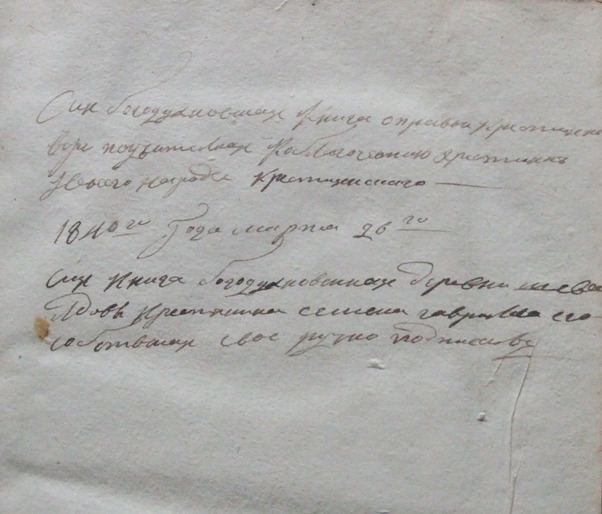 Сия богодухновенная Книга о правой християнско
вере поучителная К благочестию християнъ
и всего народа християнского
1840го Года марта 26го
Сия Книга богодухновенная деревни
крестянина семена гаврилова его
собственная свое ручно подписалъ